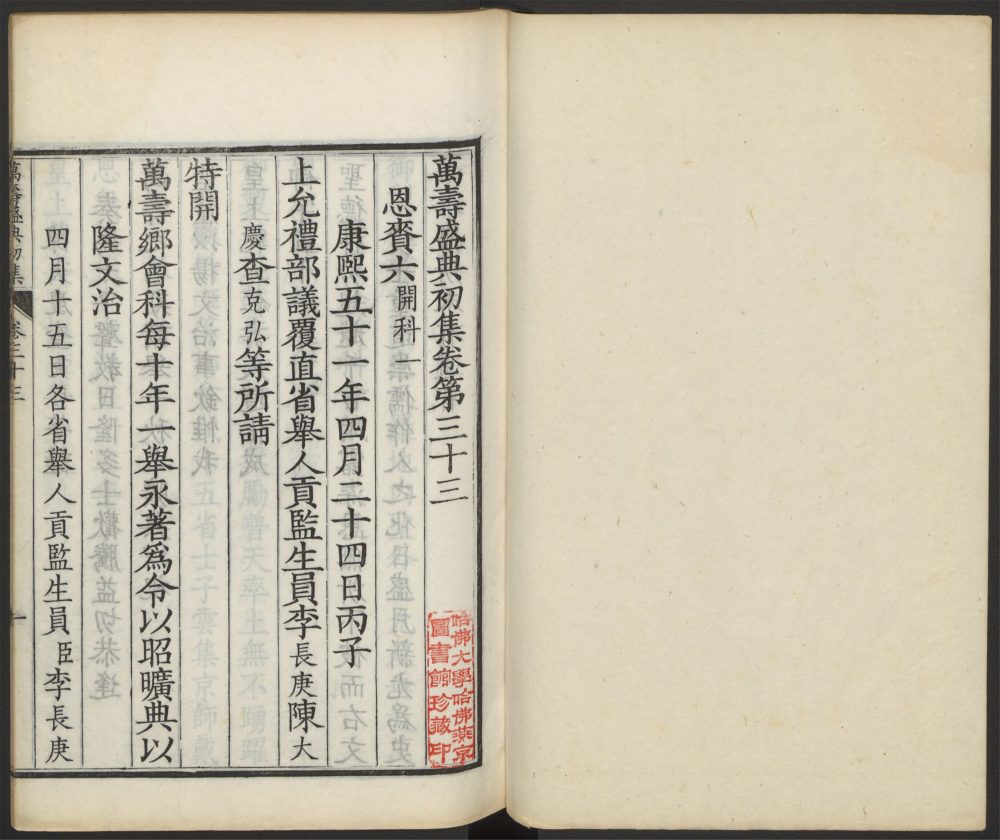 萬壽盛典初集卷第三十三
恩賚六 開科一
康熙五十一年四月二十四日丙子
上允禮部議覆直省舉人貢監生員李長庚陳大
慶查克弘等所請
特開
萬壽鄉會科每十年一舉永著爲令以昭曠典以
隆文治
四月十五日各省舉人貢監生員臣李長庚
萬壽盛典初集
卷三十三
一
哈佛大學哈佛燕京
圖書館珍藏印